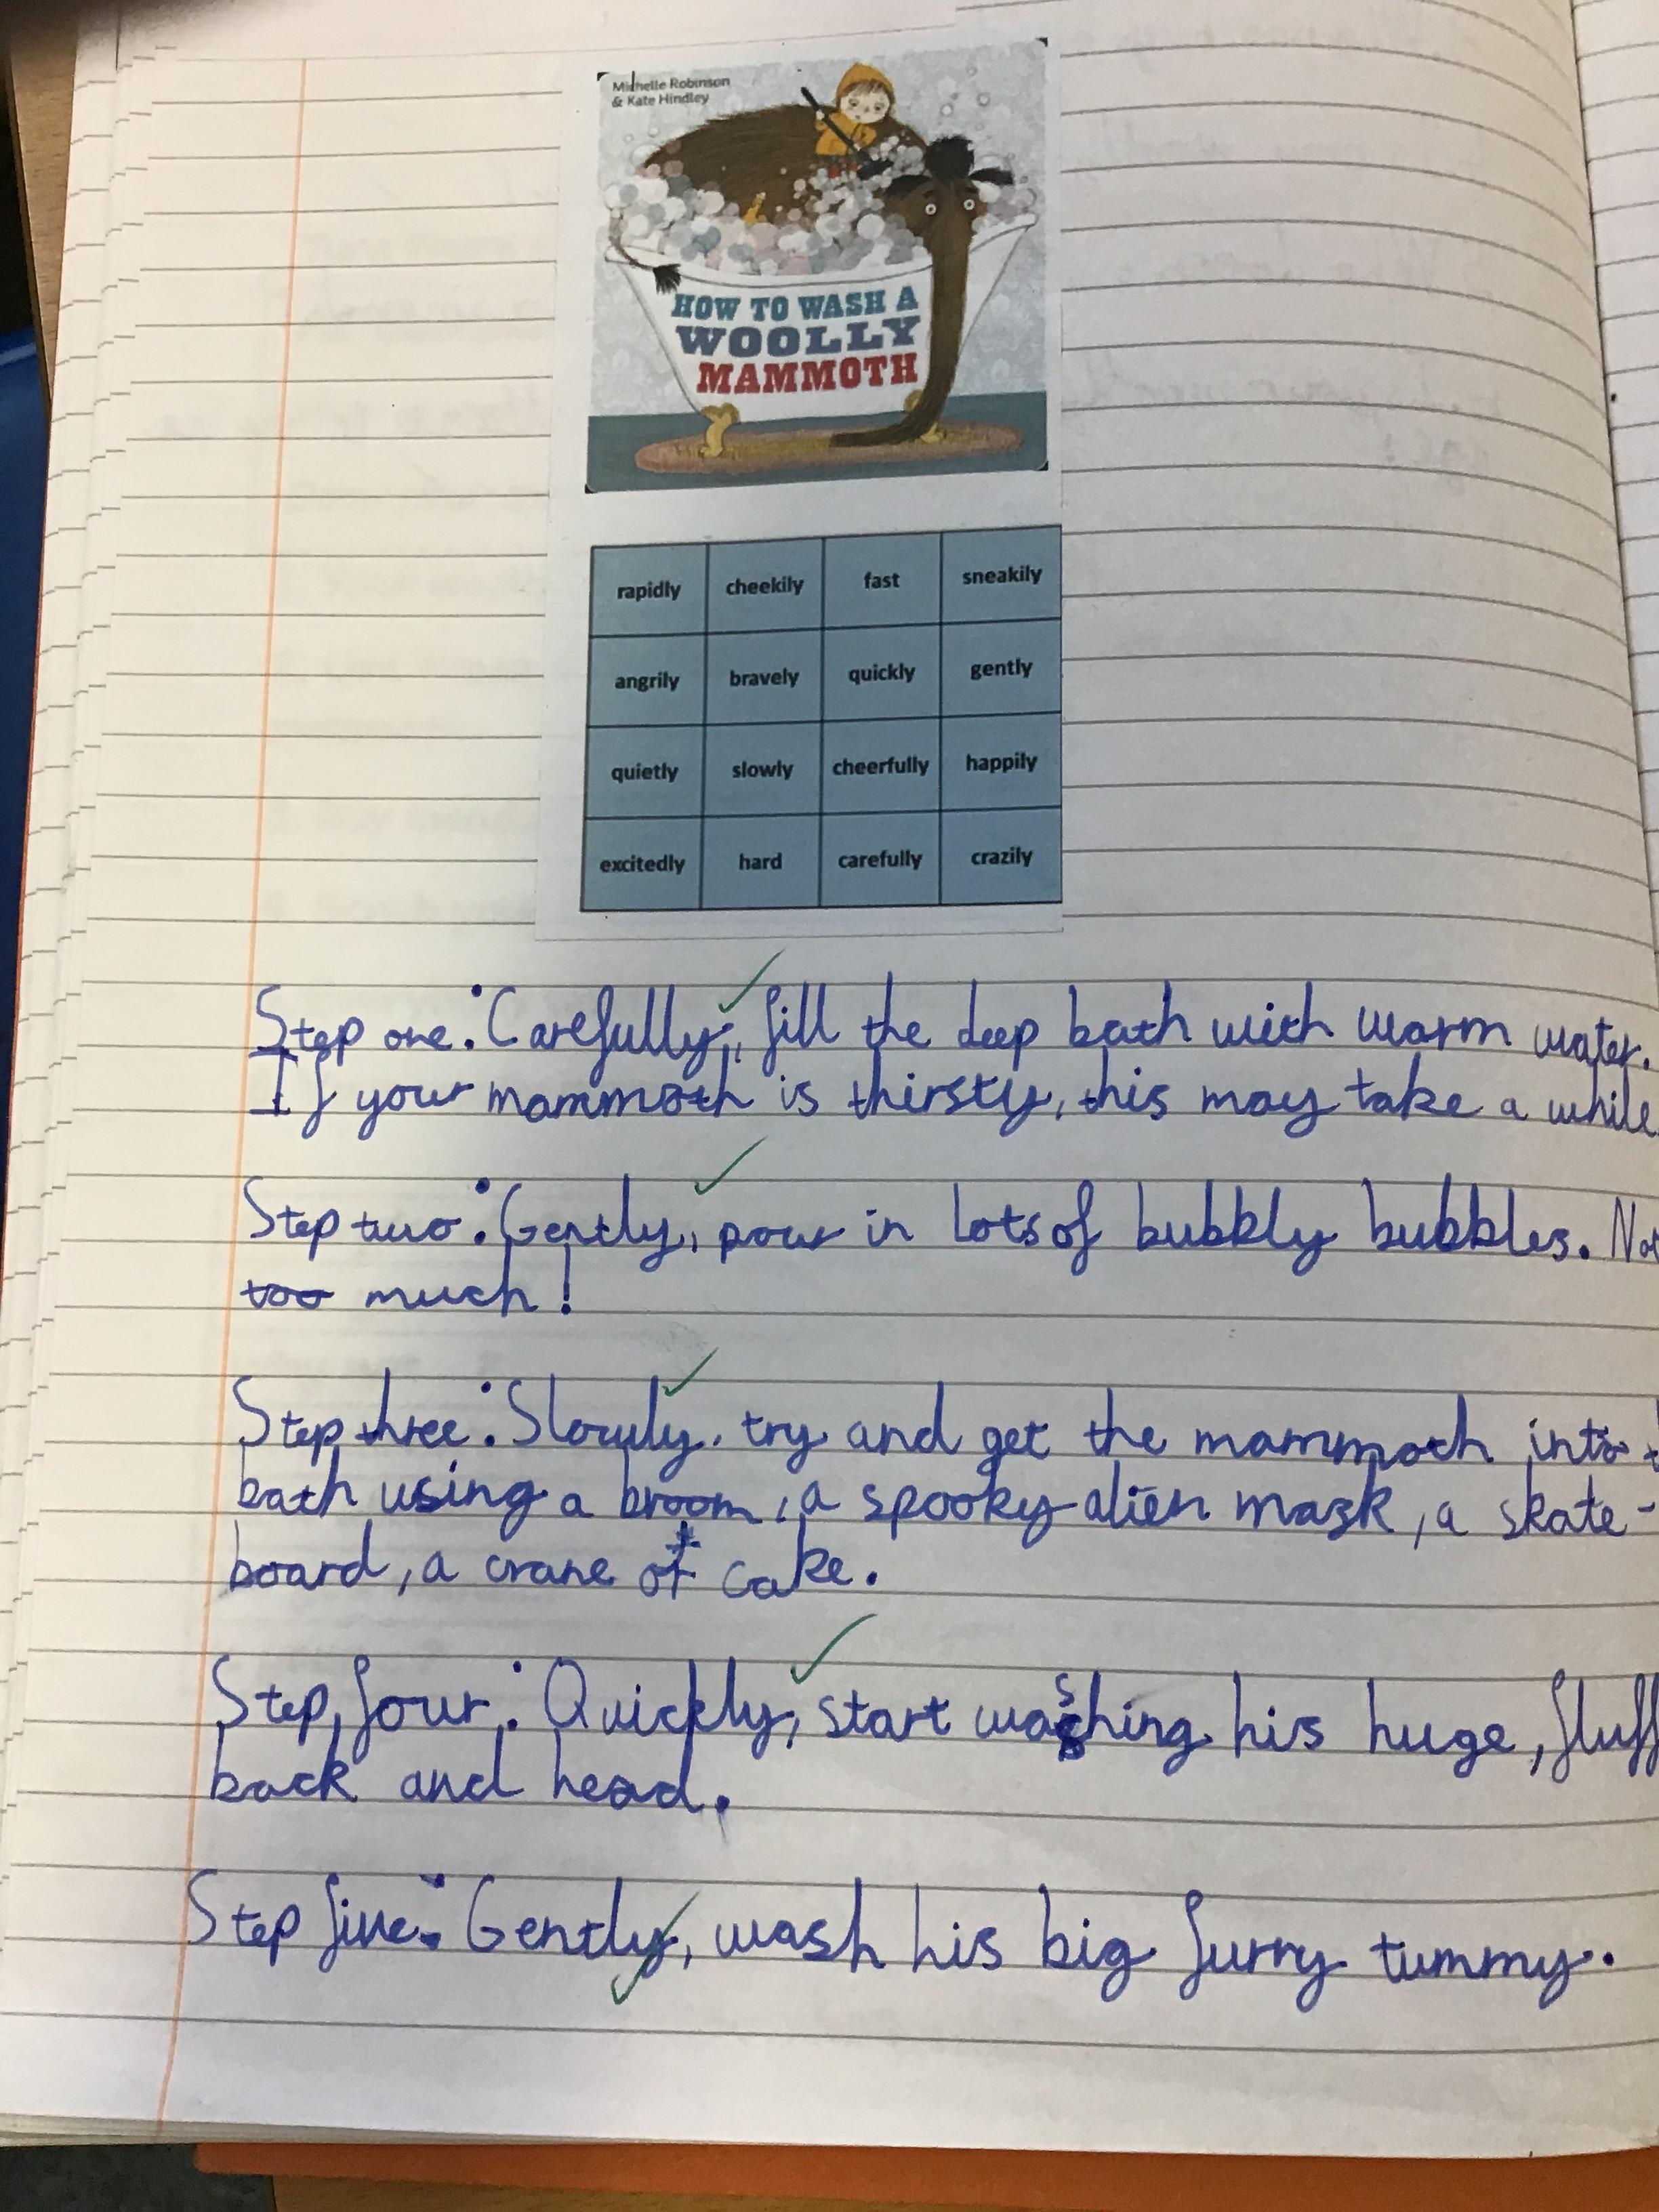 Michelle Robinson
& Kate Hindley
HOW TO WASH A
WOOLLY
MAMMOTH
rapidly cheekily fast sneakily
angrily bravely quickly gently
quietly slowly cheerfully happily
excitedly hard carefully crazily
Step one: Carefully, fill the deep bath with warm water.
If your mammoth is thirsty, this may take a while
Step two: Gently, pour in lots of bubbly bubbles. Not
too much!
Step three: Slowly, try and get the mammoth into
bath using a broom, a spooky alien mask, a skate-
board, a crane or cake.
Step four: Quickly, start washing his huge, fluff
back and head.
Step five: Gently, wash his big furry tummy.